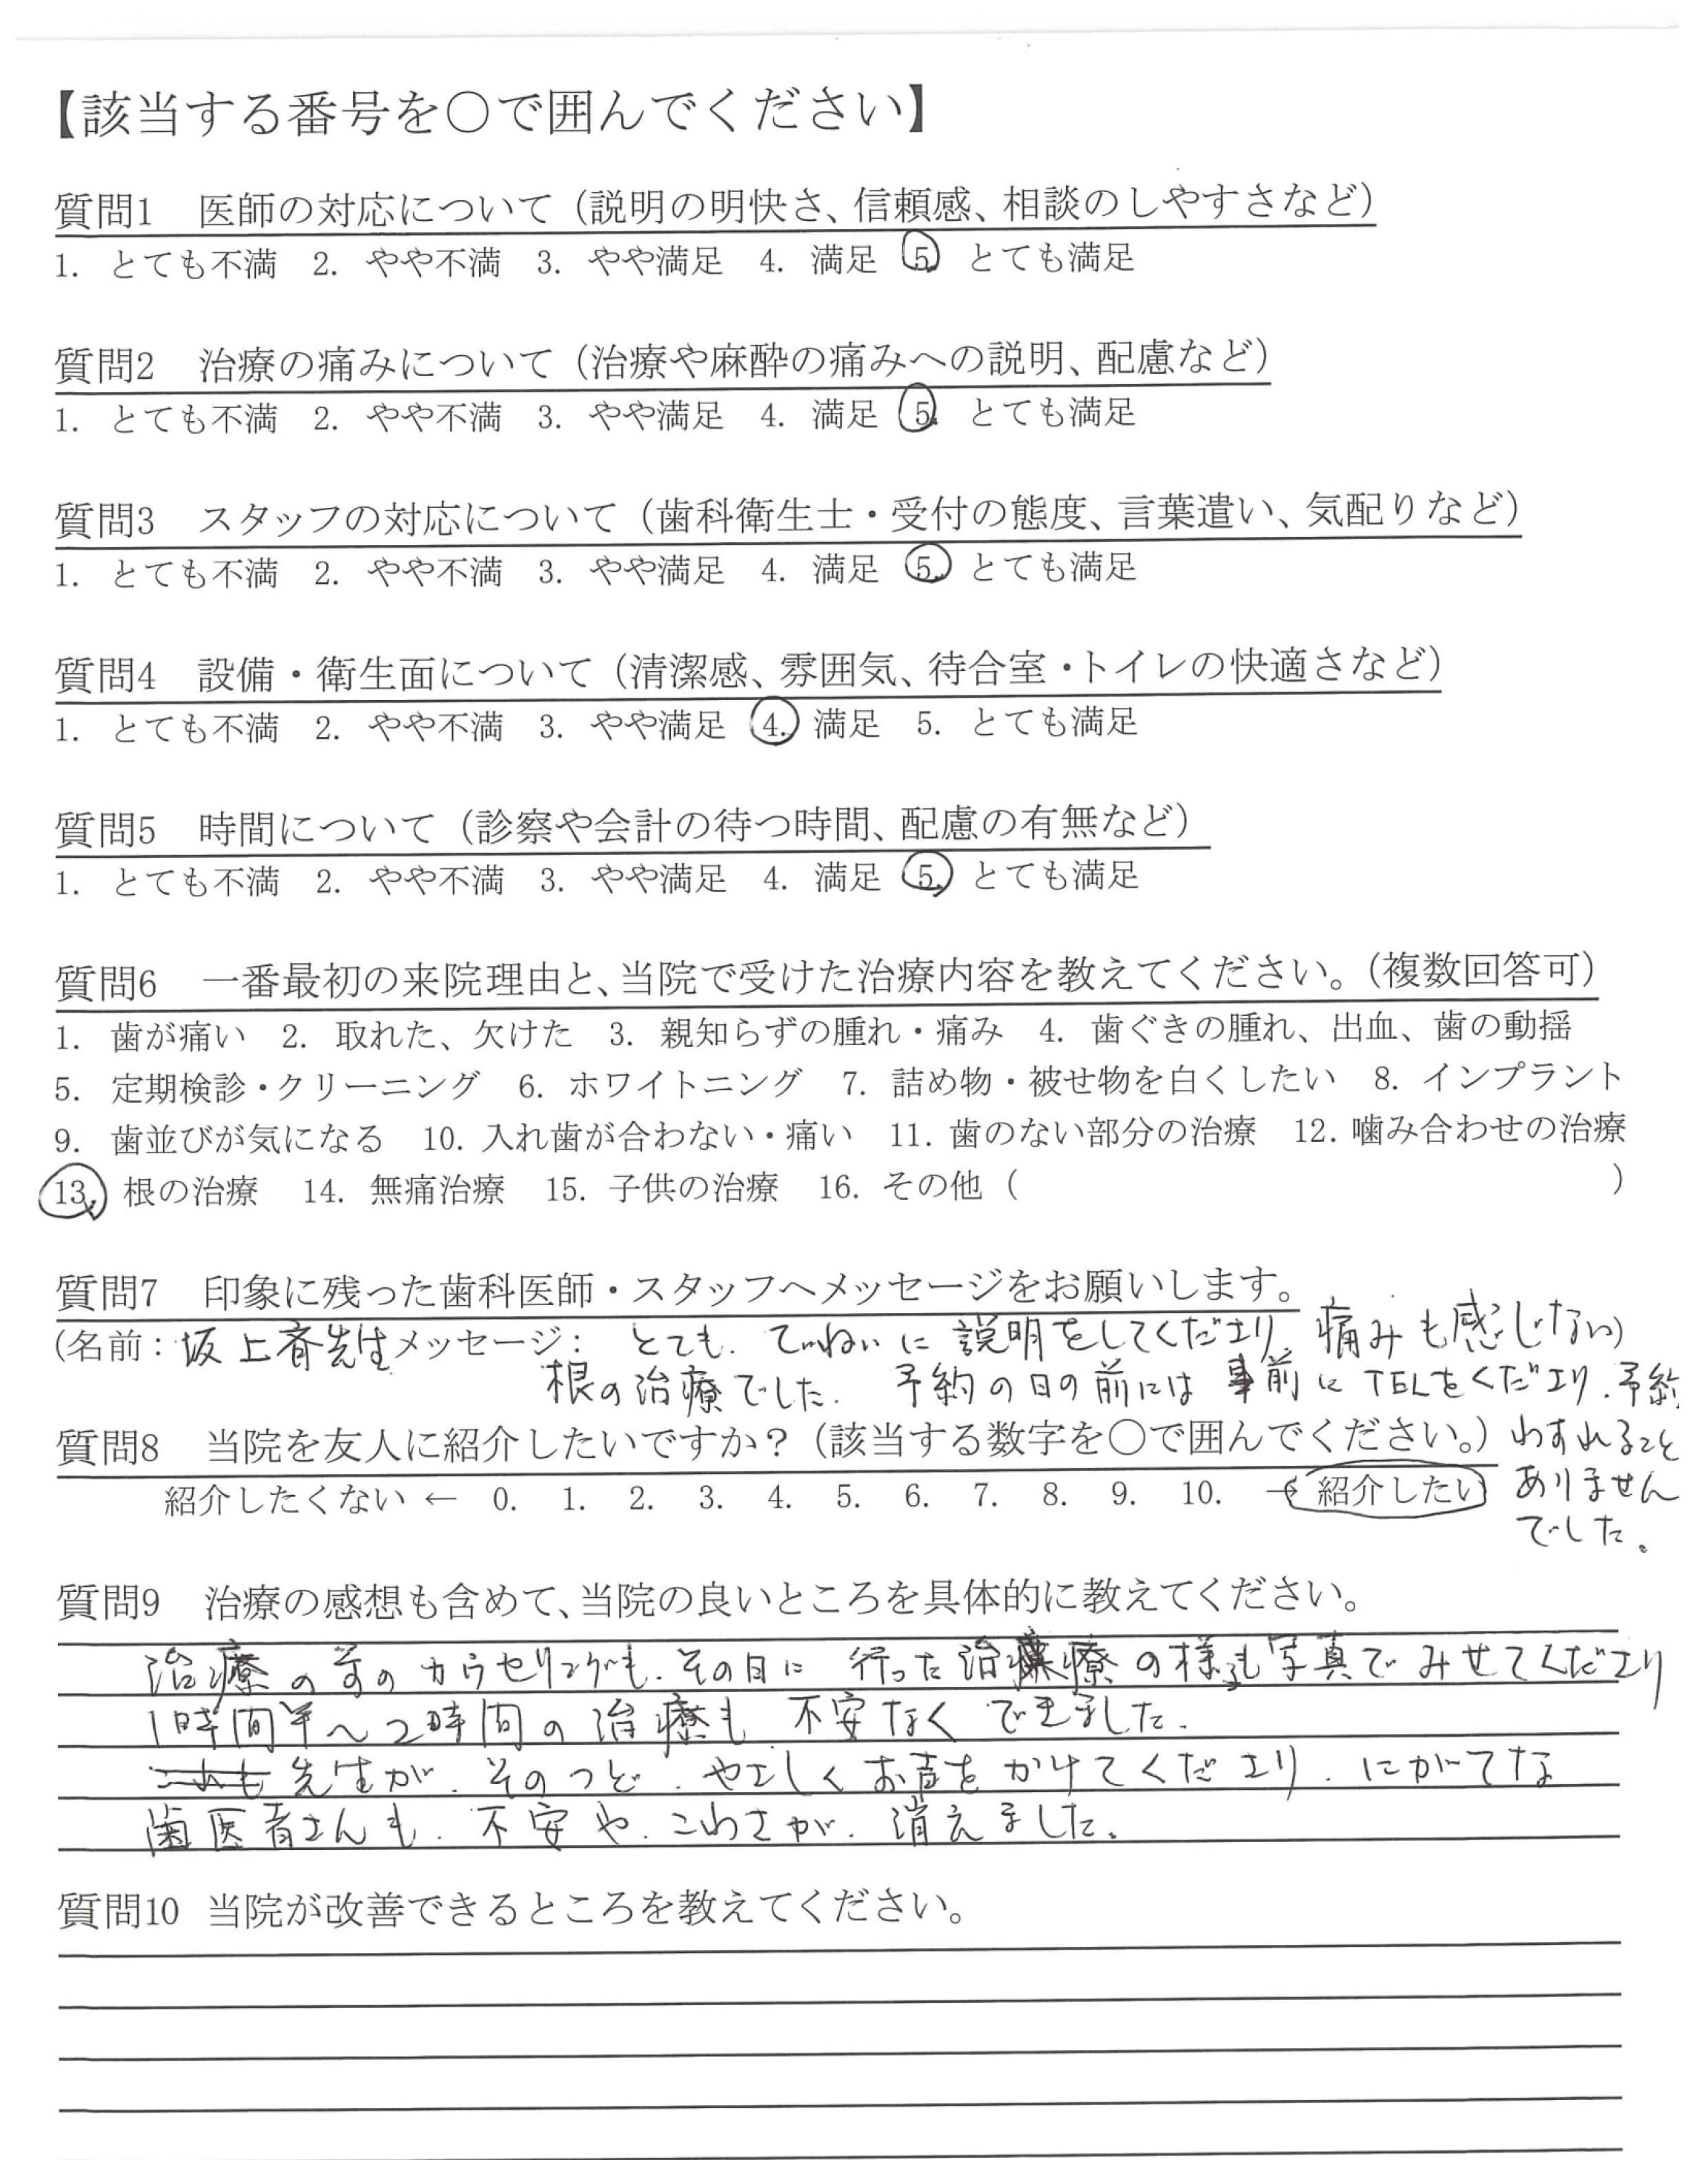 【該当する番号を○で囲んでください】
質問1 医師の対応について（説明の明快さ、信頼感、相談のしやすさなど）
1. とても不満 2. やや不満 3. やや満足 4. 満足 5. とても満足
質問2 治療の痛みについて（治療や麻酔の痛みへの説明、配慮など）
1. とても不満 2. やや不満 3. やや満足 4. 満足 5. とても満足
質問3 スタッフの対応について（歯科衛生士・受付の態度、言葉遣い、気配りなど）
1. とても不満 2. やや不満 3. やや満足 4. 満足 5. とても満足
質問4 設備・衛生面について（清潔感、雰囲気、待合室・トイレの快適さなど）
1. とても不満 2. やや不満 3. やや満足 4. 満足 5. とても満足
質問5 時間について（診察や会計の待つ時間、配慮の有無など）
1. とても不満 2. やや不満 3. やや満足 4. 満足 5. とても満足
質問6 一番最初の来院理由と、当院で受けた治療内容を教えてください。（複数回答可）
1. 歯が痛い 2. 取れた、欠けた 3. 親知らずの腫れ・痛み 4. 歯ぐきの腫れ、出血、歯の動揺
5. 定期検診・クリーニング 6. ホワイトニング 7. 詰め物・被せ物を白くしたい 8. インプラント
9. 歯並びが気になる 10. 入れ歯が合わない・痛い 11. 歯のない部分の治療 12. 噛み合わせの治療
13. 根の治療 14. 無痛治療 15. 子供の治療 16. その他（ ）
質問7 印象に残った歯科医師・スタッフへメッセージをお願いします。
（名前：坂上斉先生メッセージ： とても、ていねいに説明をしてくださり 痛みも感じない）
根の治療でした. 予約の日の前には事前にTELをくださり. 予約
わすれること
ありません
でした。
質問8 当院を友人に紹介したいですか？（該当する数字を○で囲んでください。）
紹介したくない ← 0. 1. 2. 3. 4. 5. 6. 7. 8. 9. 10. → 紹介したい
質問9 治療の感想も含めて、当院の良いところを具体的に教えてください。
治療の前のカウセリングも. その日に 行った治療の様も写真でみせてくださり
1時間半～2時間の治療も 不安なく できました.
先生が. そのつど. やさしくお声をかけてくださり. にがてな
歯医者さんも. 不安や. こわさが. 消えました.
質問10 当院が改善できるところを教えてください。